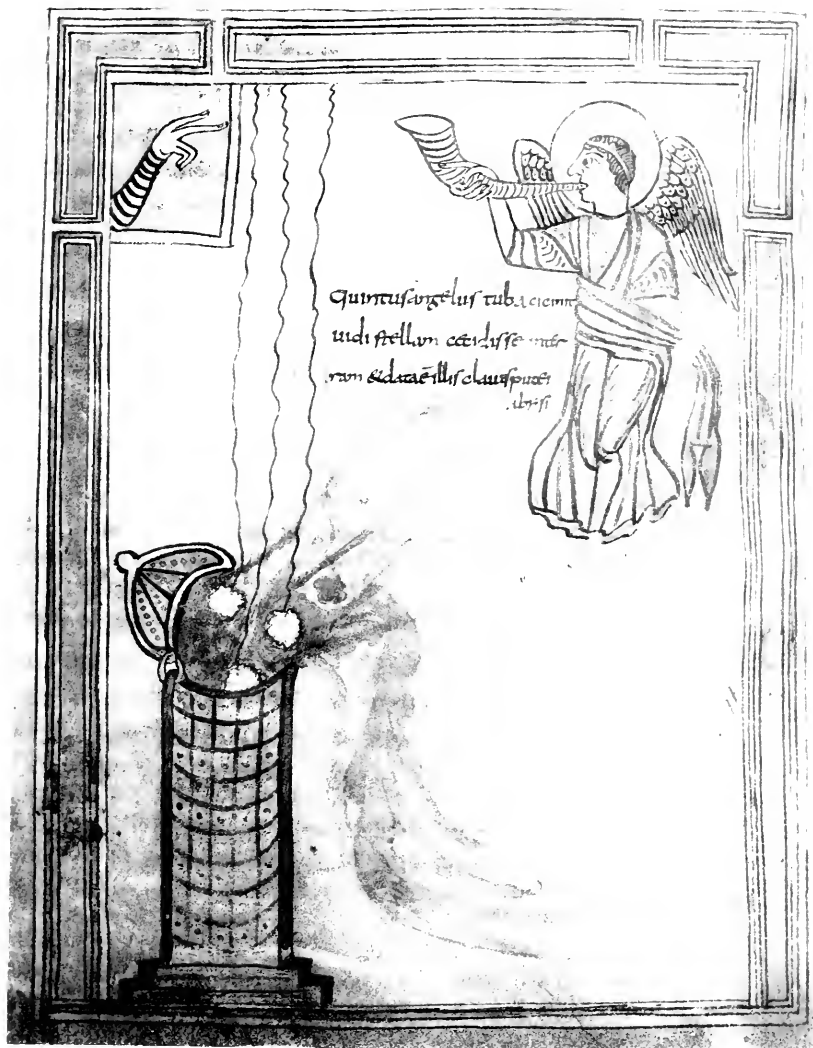 Quintus angelus tuba cicinit
uidi stellam cecidisse inter
ram & data ē illis clauis putei
abissi